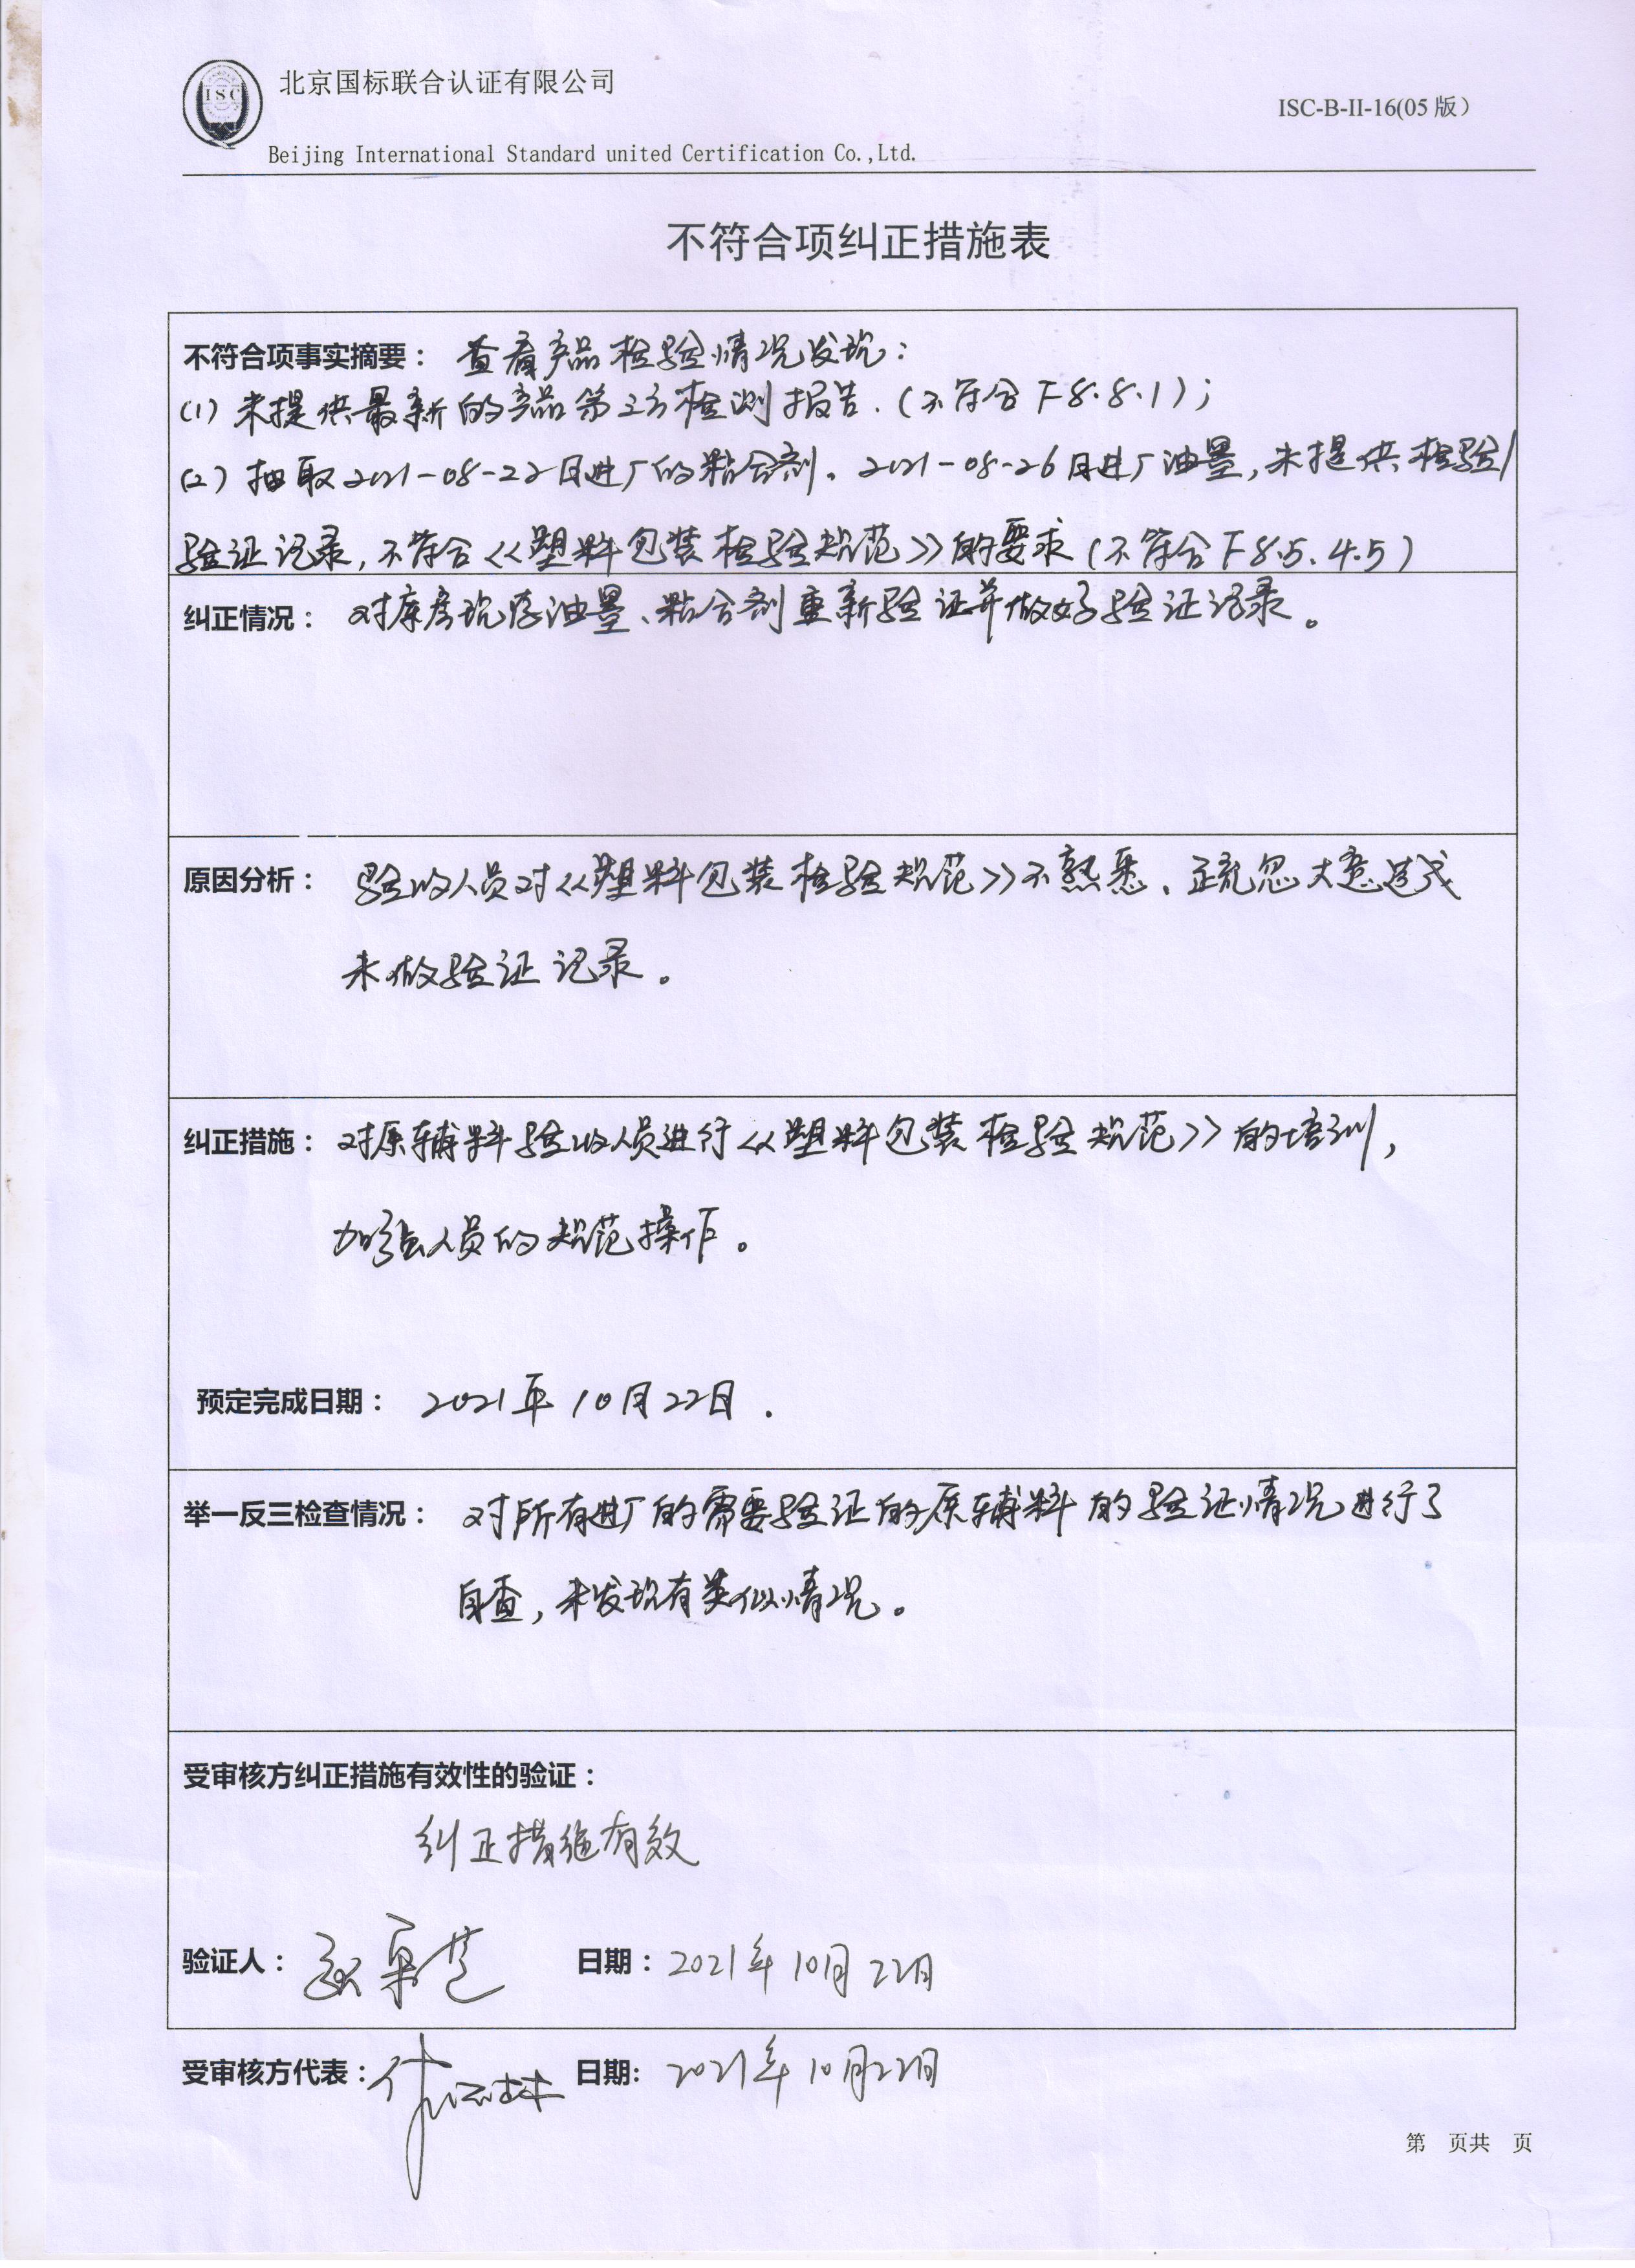 ISC
北京国标联合认证有限公司
ISC-B-II-16(05 版）
Beijing International Standard united Certification Co.,Ltd.
不符合项纠正措施表
不符合项事实摘要： 查看产品检验情况发现：
(1) 未提供最新的产品第三方检测报告.（不符合 F8.8.1）;
(2) 抽取2021-08-22日进厂的粘合剂. 2021-08-26日进厂油墨,未提供检验/
验证记录,不符合《塑料包装检验规范》的要求（不符合F8.5.4.5）
纠正情况： 对库房现存油墨、粘合剂重新验证并做好验证记录。
原因分析： 验收人员对《塑料包装检验规范》不熟悉、疏忽大意造成
未做验证记录。
纠正措施： 对原辅料验收人员进行《塑料包装检验规范》的培训,
加强人员的规范操作。
预定完成日期： 2021年10月22日.
举一反三检查情况： 对所有进厂的需要验证的原辅料的验证情况进行了
自查,未发现有类似情况。
受审核方纠正措施有效性的验证：
纠正措施有效
验证人： 日期： 2021年10月22日
受审核方代表： 日期: 2021年10月22日
第 页共 页